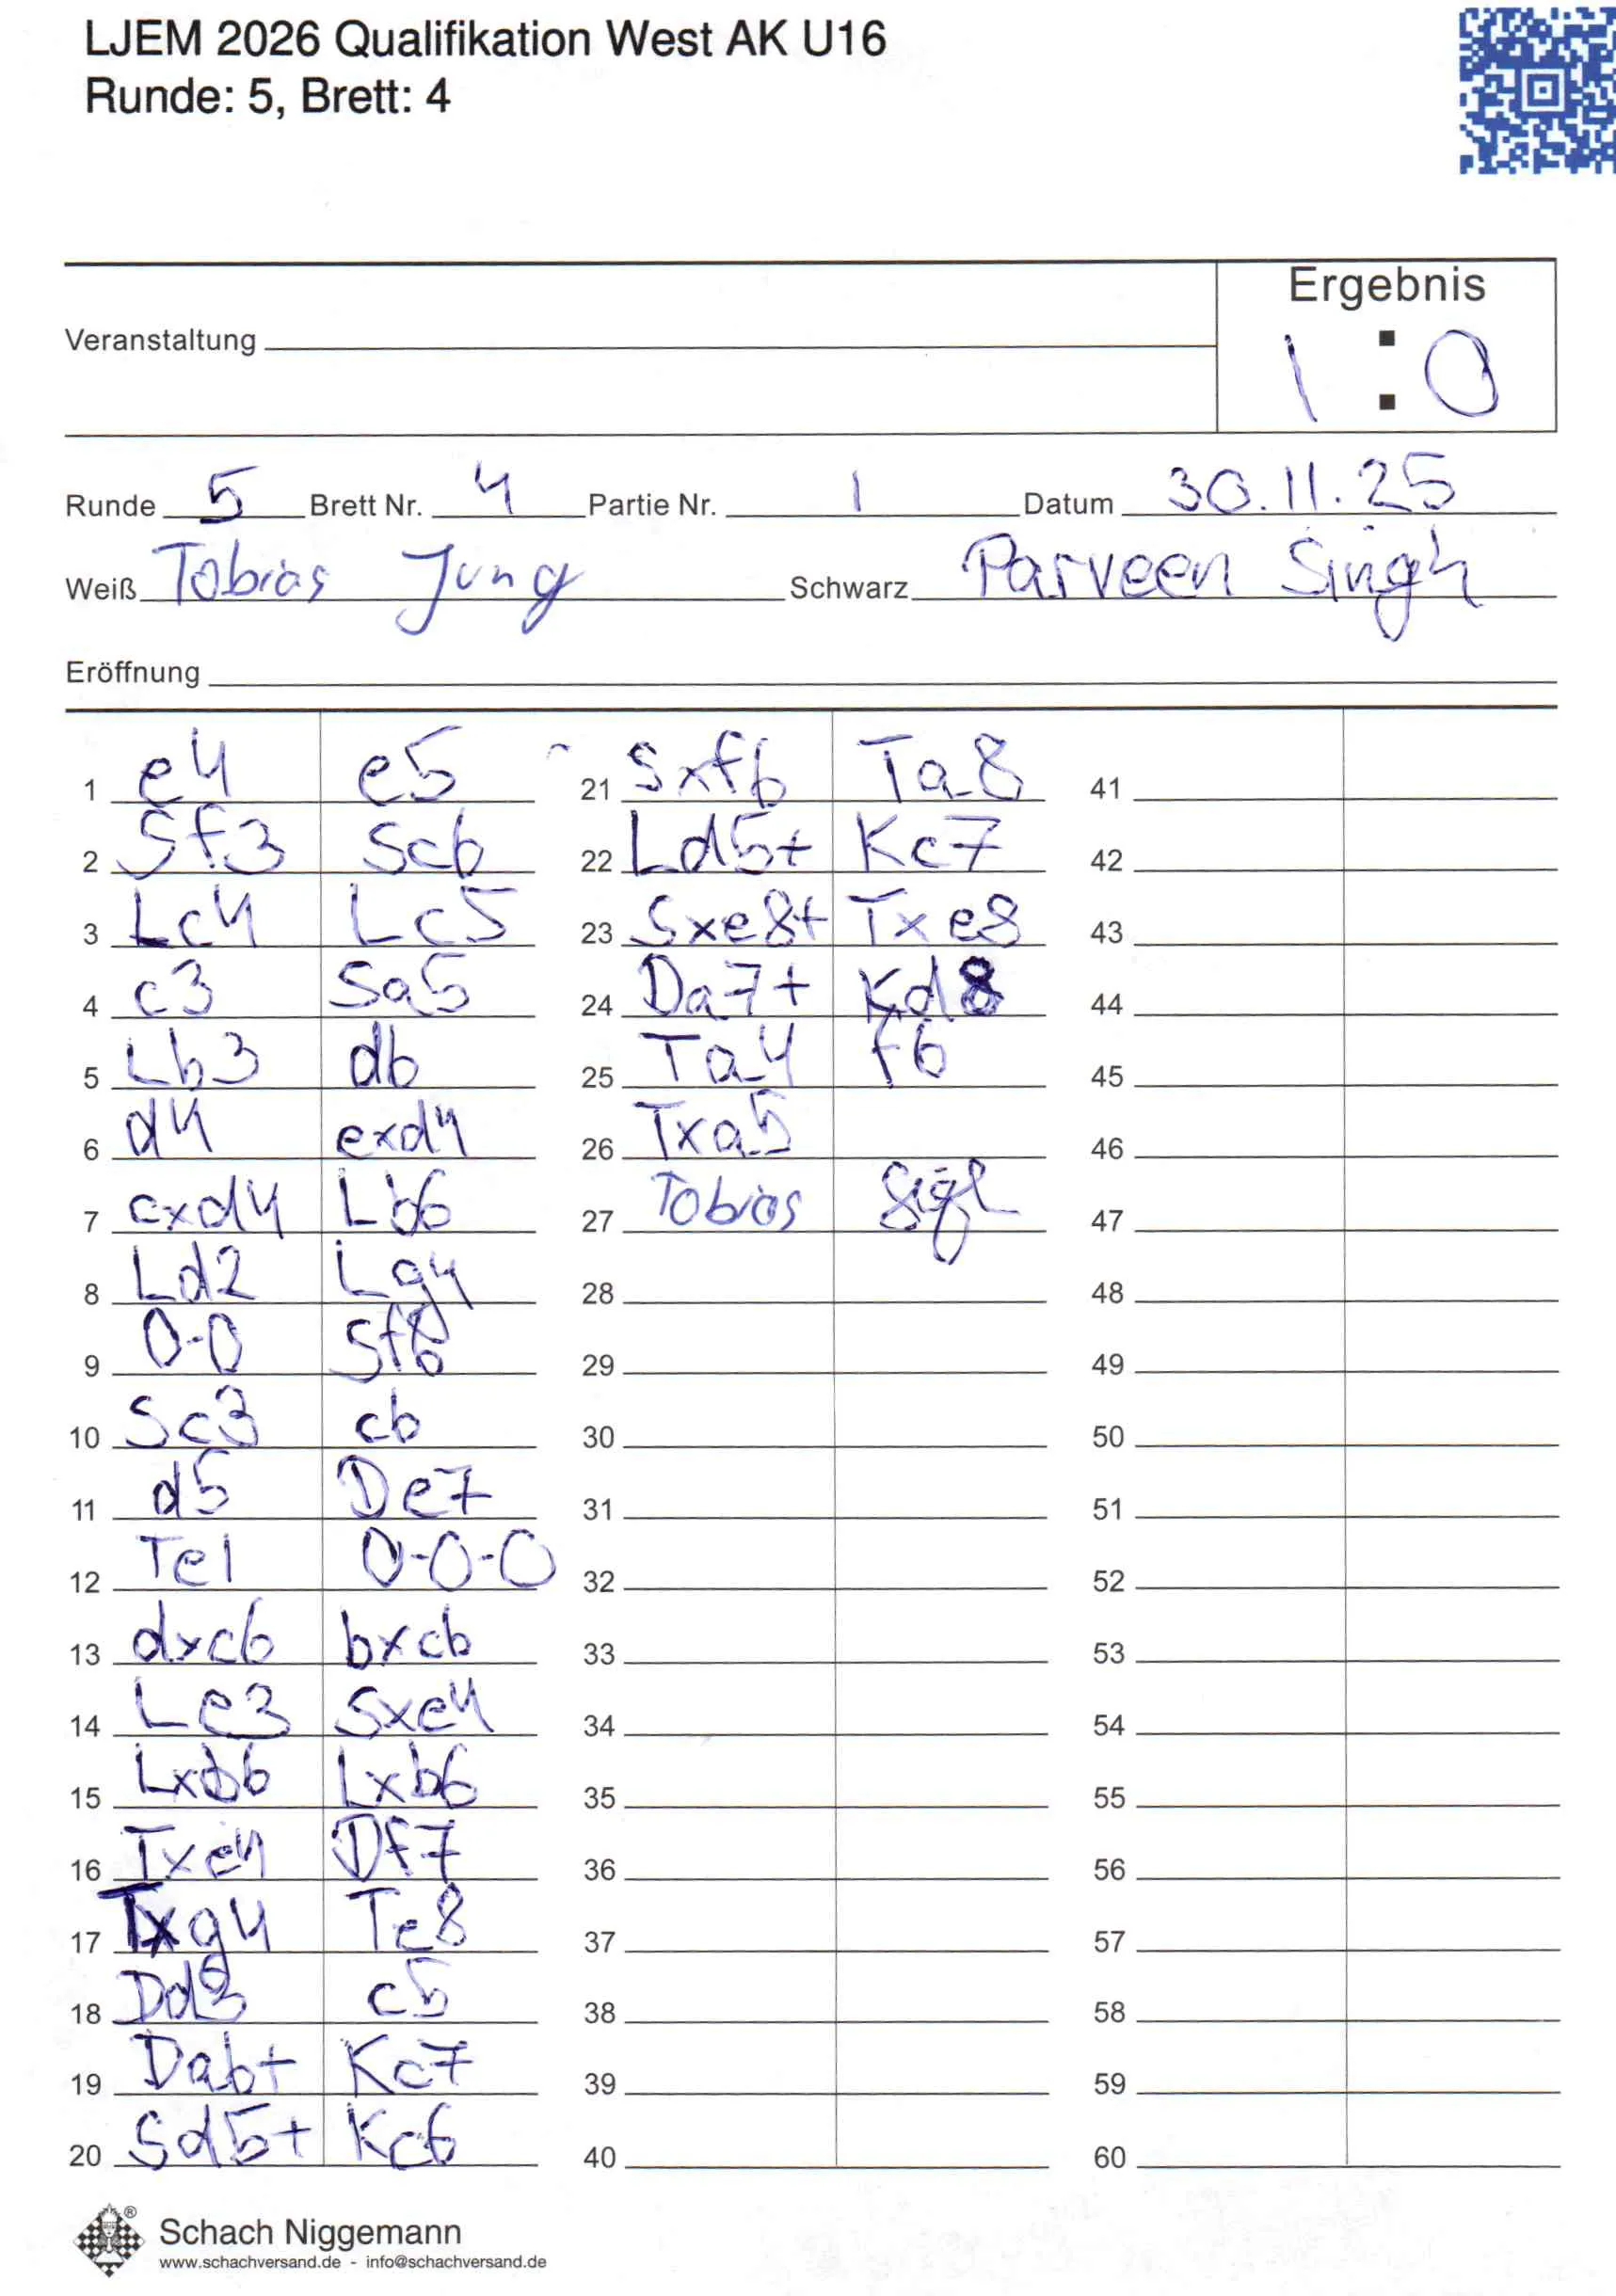 LJEM 2026 Qualifikation West AK U16
Runde: 5, Brett: 4
Ergebnis
Veranstaltung
1 : 0
Runde 5 Brett Nr. 4 Partie Nr. 1 Datum 30.11.25
Weiß Tobias Jung Schwarz Parveen Singh
Eröffnung
1 e4 e5
2 Sf3 Sc6
3 Lc4 Lc5
4 c3 Sa5
5 Lb3 d6
6 d4 exd4
7 cxd4 Lb6
8 Ld2 Lg4
9 0-0 Sf6
10 Sc3 c6
11 d5 De7
12 Te1 0-0-0
13 dxc6 bxc6
14 Le3 Sxe4
15 Lxb6 Lxb6
16 Txe4 Df7
17 Txg4 Te8
18 Dd3 c5
19 Da6+ Kc7
20 Sd5+ Kc6
21 Sxf6 Ta8
22 Ld5+ Kc7
23 Sxe8+ Txe8
24 Da7+ Kd8
25 Ta4 f6
26 Txa5
27 Tobias Sigh
28
29
30
31
32
33
34
35
36
37
38
39
40
41
42
43
44
45
46
47
48
49
50
51
52
53
54
55
56
57
58
59
60
Schach Niggemann ®
www.schachversand.de - info@schachversand.de